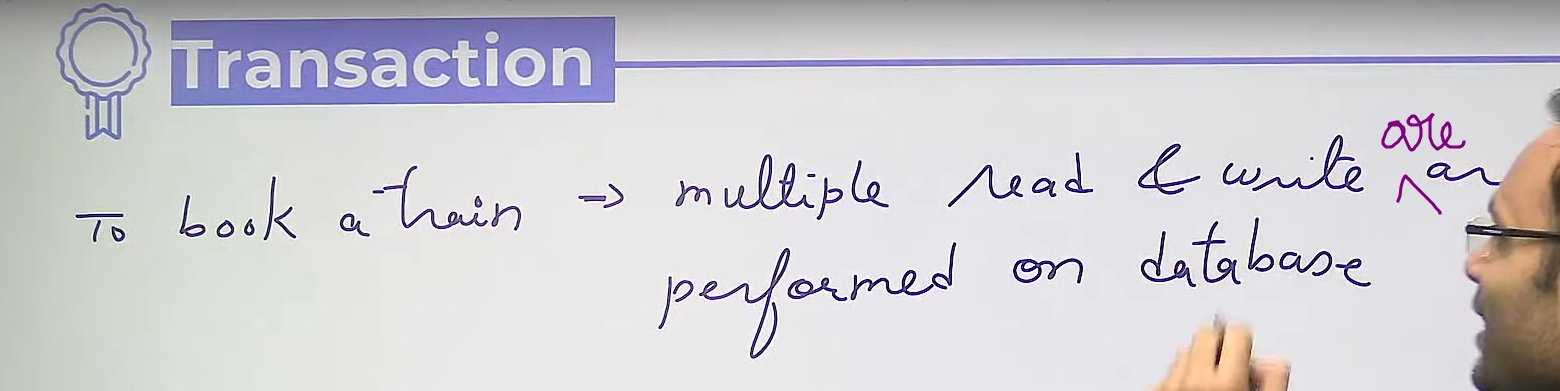 Transaction
To book a train → multiple read & write are
performed on database